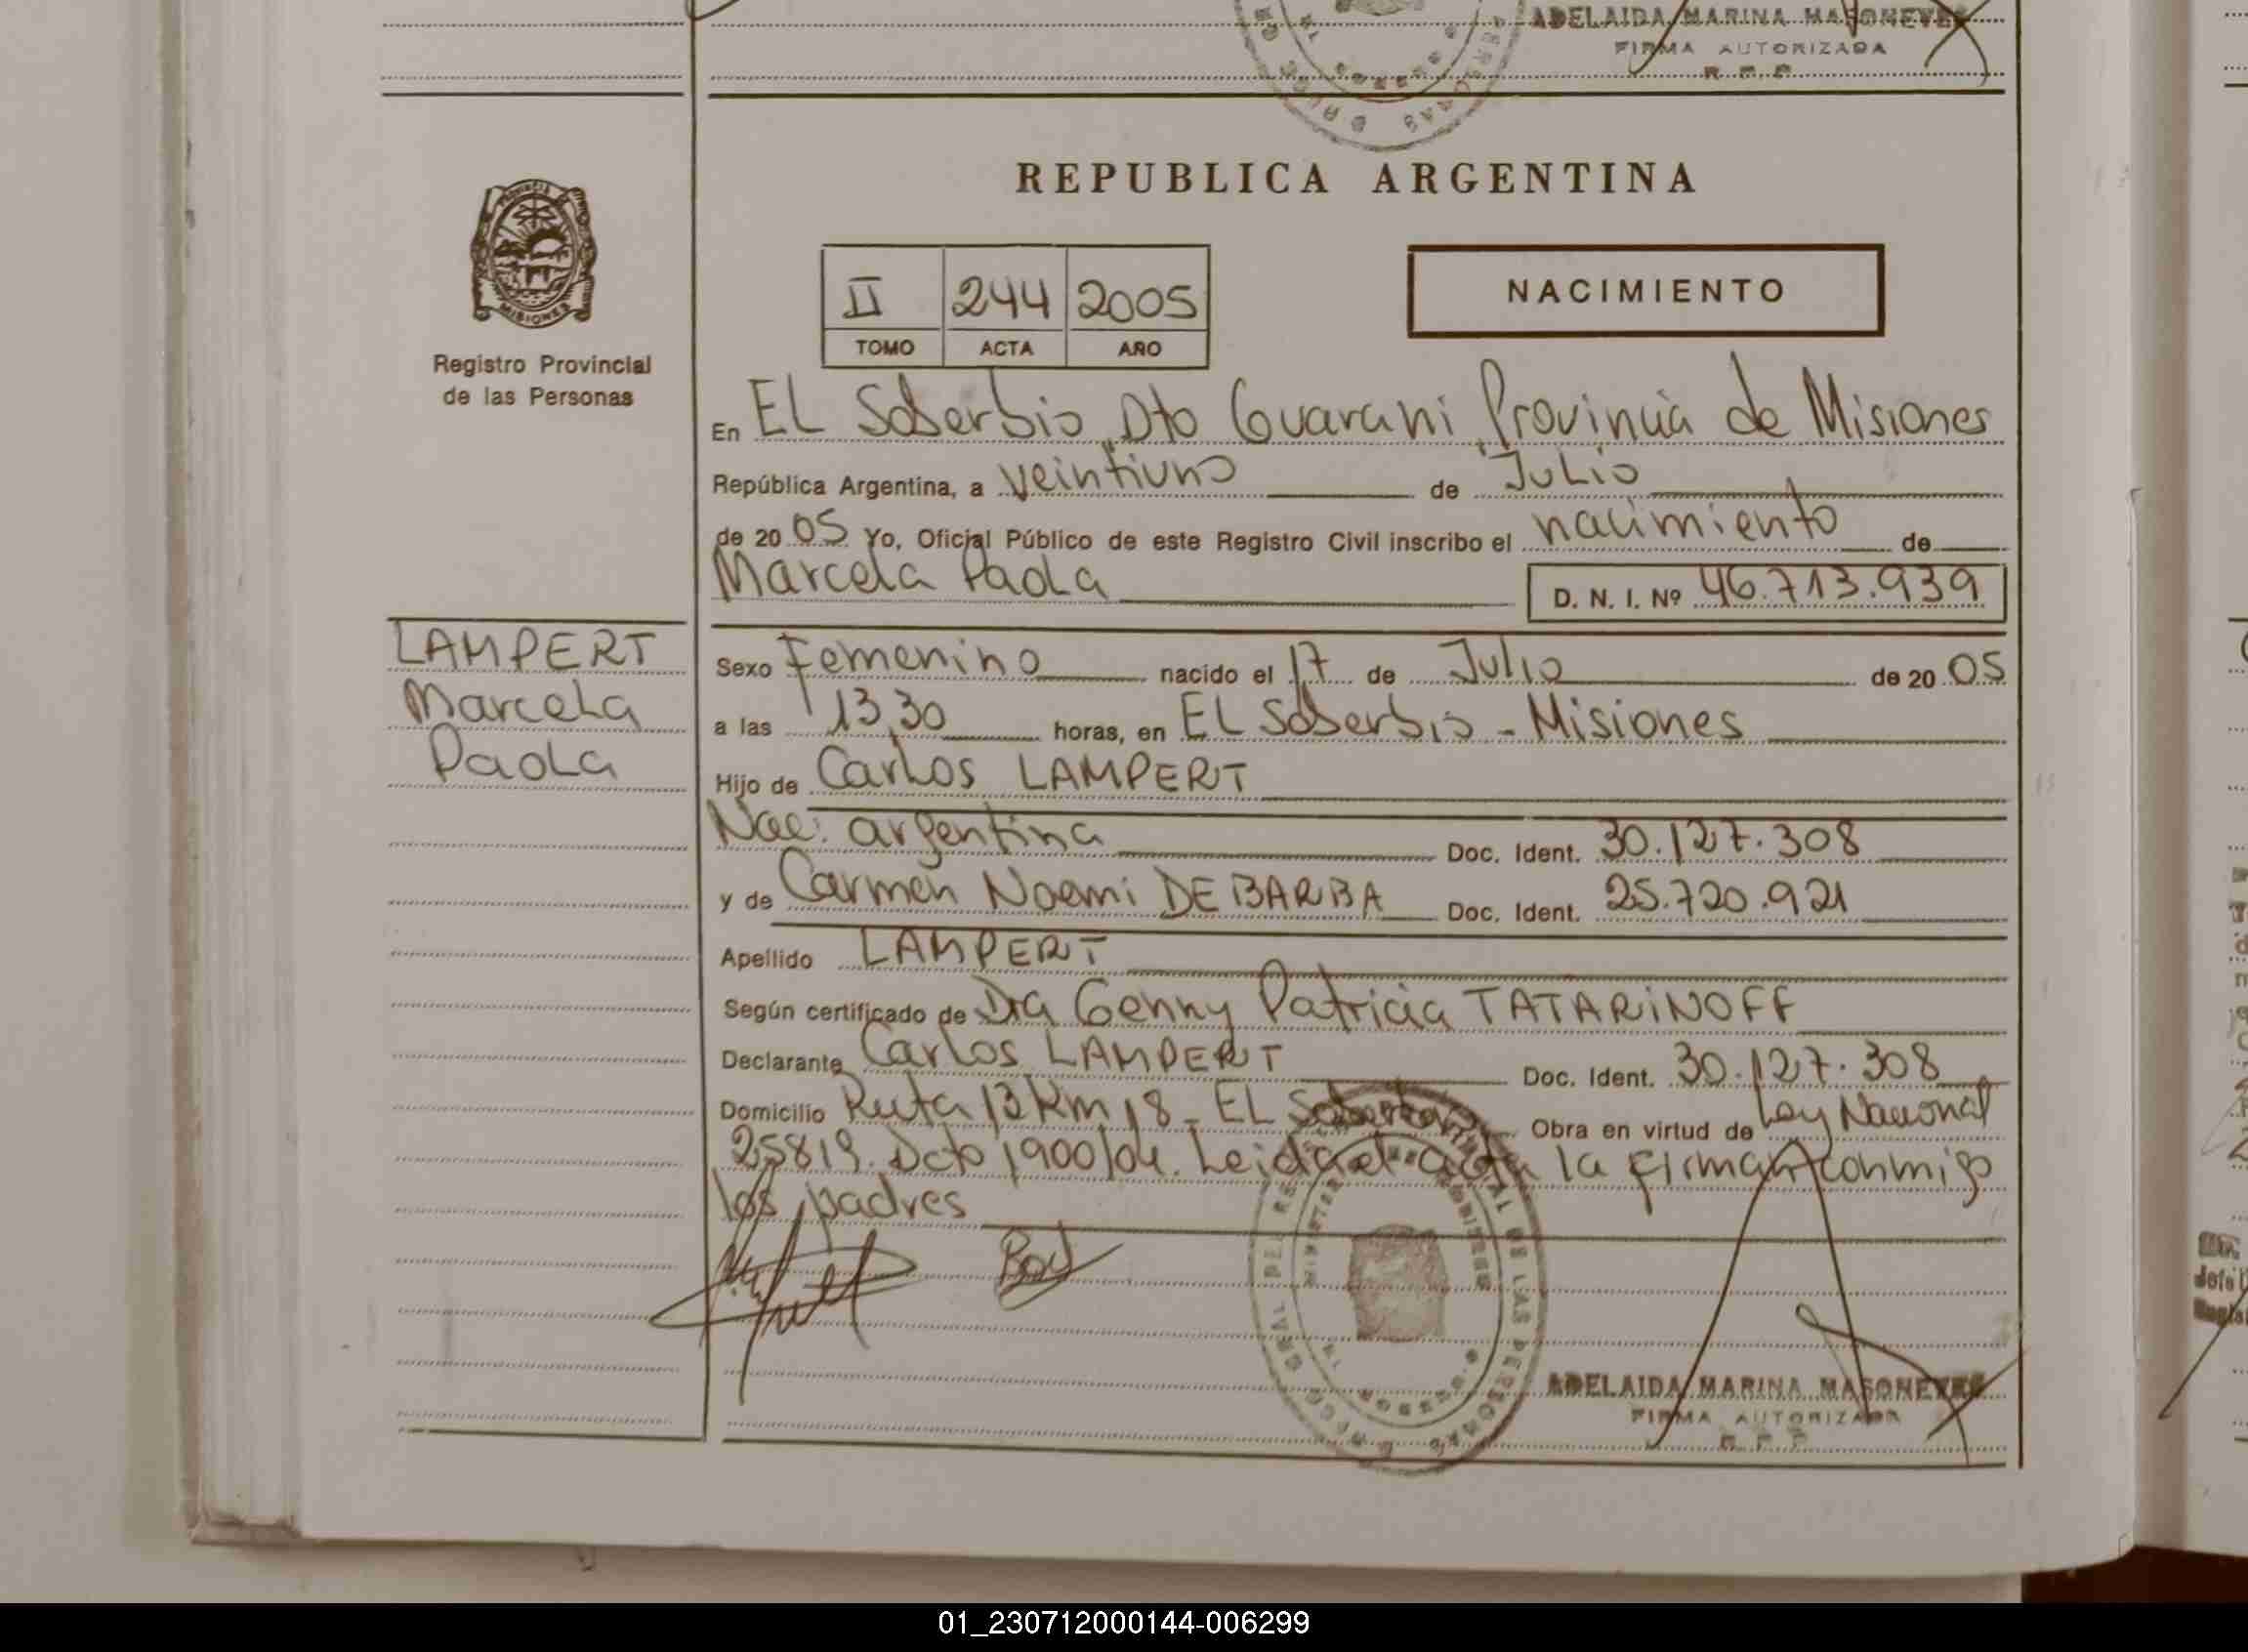 ADELAIDA MARINA MASONEVES
FIRMA AUTORIZADA
R. P. P.
REPUBLICA ARGENTINA
PROVINCIA
MISIONES
Registro Provincial
de las Personas
II 244 2005
TOMO ACTA AÑO
NACIMIENTO
En EL Soberbio Dto Guarani Provincia de Misiones
República Argentina, a veintiuno de Julio
de 20 05 Yo, Oficial Público de este Registro Civil inscribo el nacimiento de
Marcela Paola D. N. I. Nº 46.713.939
LAMPERT
Marcela
Paola
Sexo Femenino nacido el 17 de Julio de 20 05
a las 13,30 horas, en EL Soberbio - Misiones
Hijo de Carlos LAMPERT
Nac: argentina Doc. Ident. 30.127.308
y de Carmen Noemi DE BARBA Doc. Ident. 25.720.921
Apellido LAMPERT
Según certificado de Dra Genny Patricia TATARINOFF
Declarante Carlos LAMPERT Doc. Ident. 30.127.308
Domicilio Ruta 13 Km 18 - EL Soberbio Obra en virtud de Ley Nacional
25819. Dcto 1900/04. Leida el acta la firman conmigo
los padres
ADELAIDA MARINA MASONEVES
FIRMA AUTORIZADA
R. P. P.
01_230712000144-006299